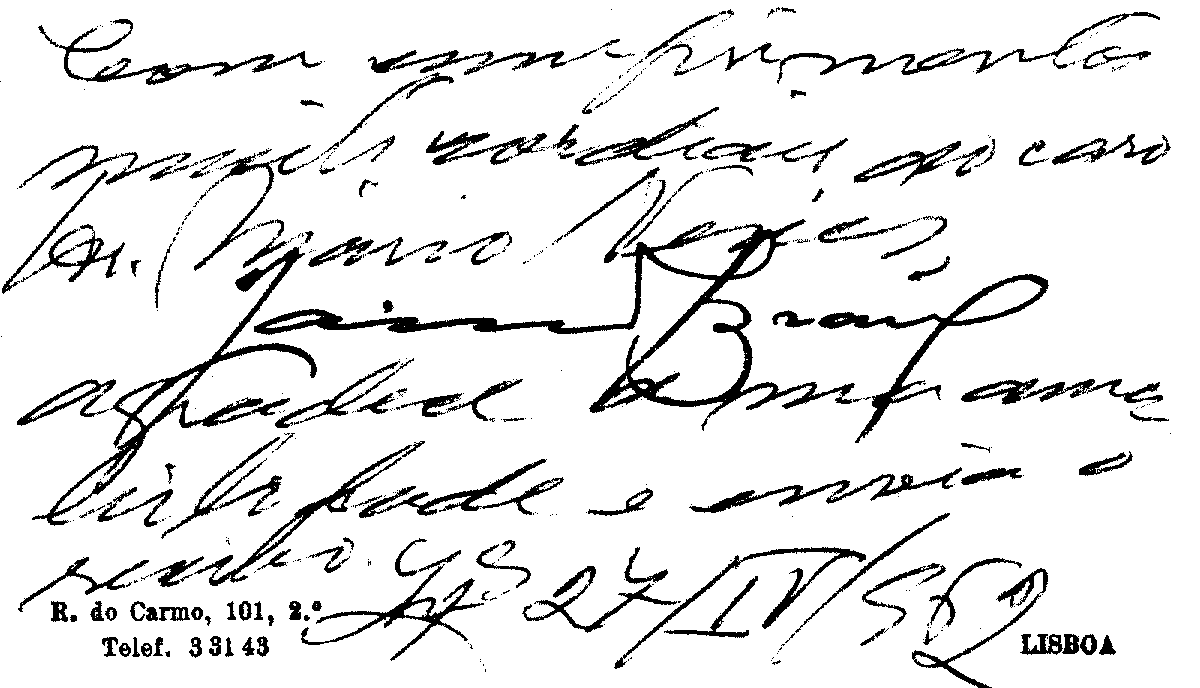 Com cumprimentos
muito cordiais ao caro
Dr. Mário Neves,
Jaime Brasil
agradece a sua ama
bilidade e envia o
recibo.
27/IV/
R. do Carmo, 101, 2.º
Telef. 33143
LISBOA